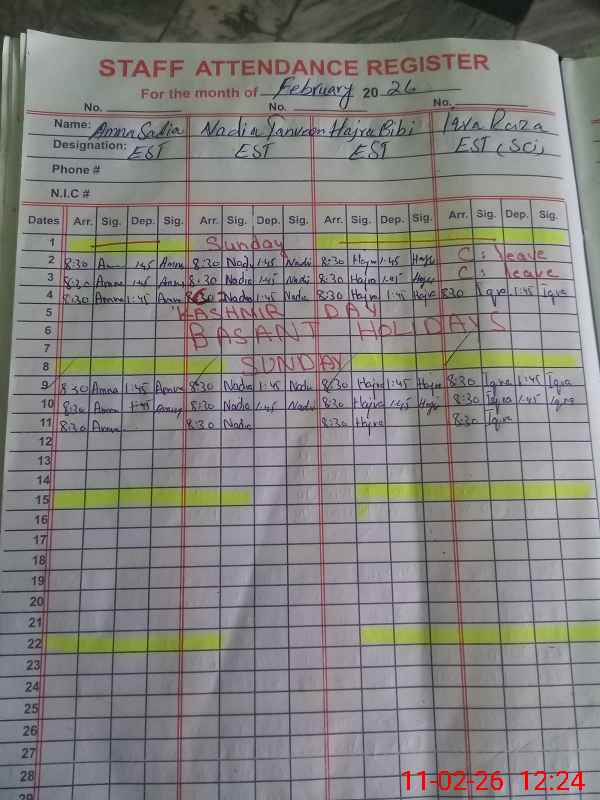 STAFF ATTENDANCE REGISTER
For the month of February 20 26
No. No. No.
Name: Amna Sadia Nadia Tanveer Hajra Bibi Iqra Raza
Designation: EST EST EST EST (Sci)
Phone #
N.I.C #
Dates Arr. Sig. Dep. Sig. Arr. Sig. Dep. Sig. Arr. Sig. Dep. Sig. Arr. Sig. Dep. Sig.
1 Sunday
2 8:30 Amna 1:45 Amna 8:30 Nadia 1:45 Nadia 8:30 Hajra 1:45 Hajra C: leave
3 8:30 Amna 1:45 Amna 8:30 Nadia 1:45 Nadia 8:30 Hajra 1:45 Hajra C: leave
4 8:30 Amna 1:45 Amna 8:30 Nadia 1:45 Nadia 8:30 Hajra 1:45 Hajra 8:30 Iqra 1:45 Iqra
5 KASHMIR DAY
6 BASANT HOLIDAYS
7
8 SUNDAY
9 8:30 Amna 1:45 Amna 8:30 Nadia 1:45 Nadia 8:30 Hajra 1:45 Hajra 8:30 Iqra 1:45 Iqra
10 8:30 Amna 1:45 Amna 8:30 Nadia 1:45 Nadia 8:30 Hajra 1:45 Hajra 8:30 Iqra 1:45 Iqra
11 8:30 Amna 8:30 Nadia 8:30 Hajra 8:30 Iqra
12
13
14
15
16
17
18
19
20
21
22
23
24
25
26
27
28
29
11-02-26 12:24